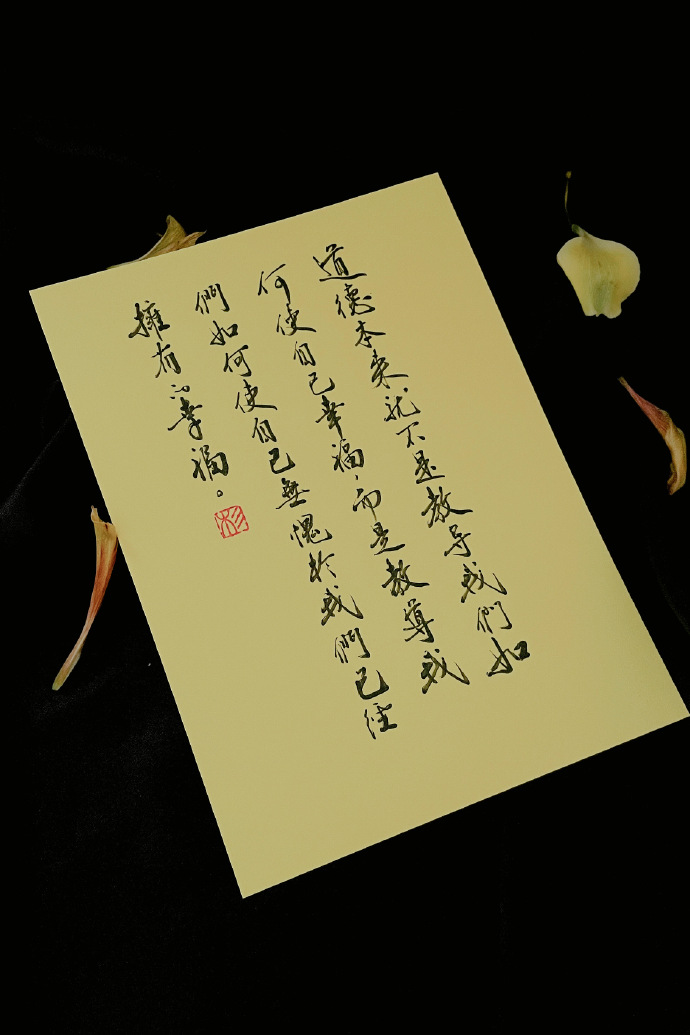 道德本来就不是教导我們如
何使自己幸福，而是教導我
們如何使自己無愧於我們已經
擁有的幸福。